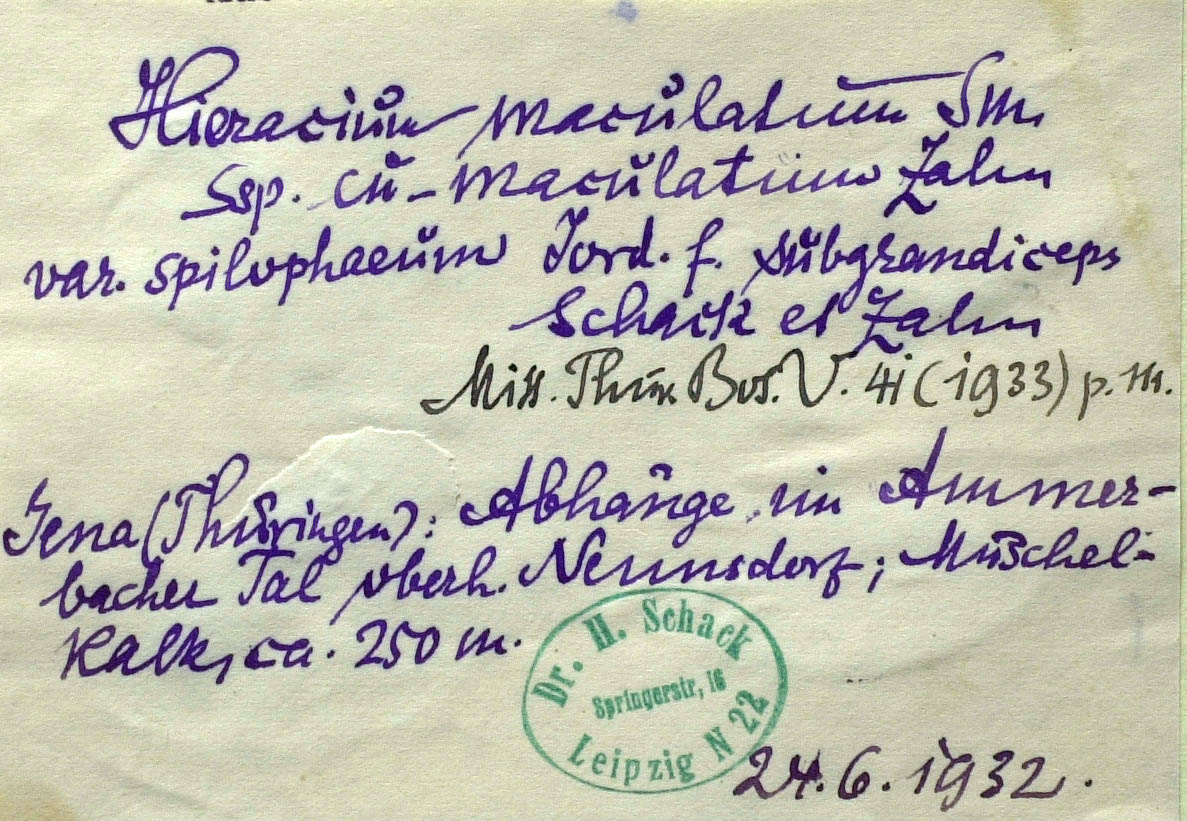 Hieracium maculatum Sm.
Ssp. cŭ-maculatum Zahn
var. spilophaeum Jord. f. subgrandiceps
Schack et Zahn
Mitt. Thür. Bot. V. 41 (1933) p.
Jena (Thüringen): Abhänge im Ammer-
bacher Tal oberh. Nennsdorf; Muschel-
Kalk, ca. 250 m.
Dr. H. Schack
Springerstr, 16
Leipzig N 22
24.6.1932.